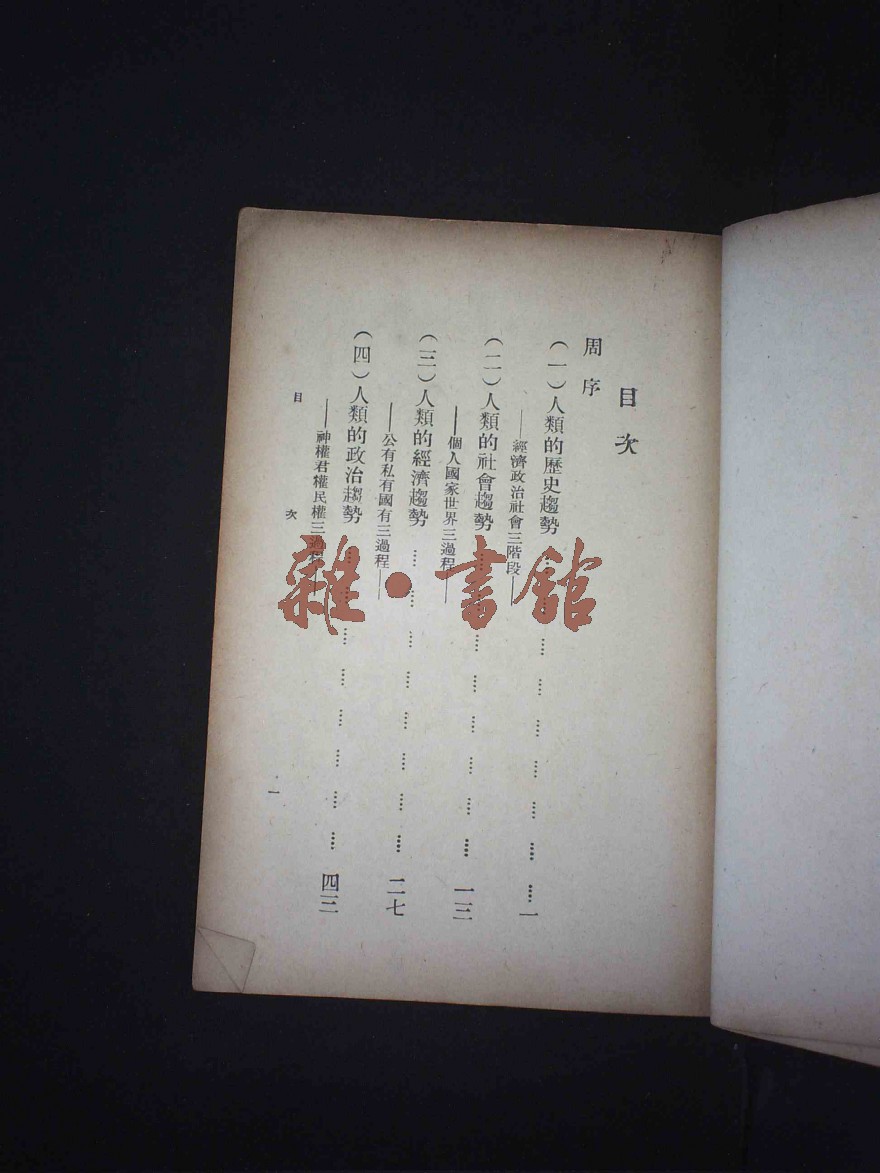 目次
周序
（一）人類的歷史趨勢…………………………一
——經濟政治社會三階段——
（二）人類的社會趨勢…………………………一三
——個人國家世界三過程——
（三）人類的經濟趨勢…………………………二七
——公有私有國有三過程——
（四）人類的政治趨勢…………………………四三
——神權君權民權三過程——
目次
一
雜·書館